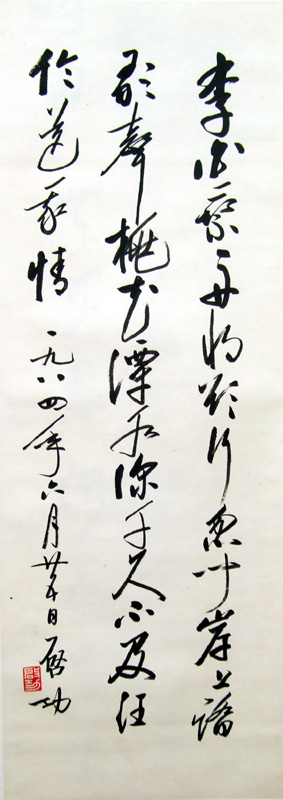 李白乘舟將欲行忽聞岸上踏
歌聲桃花潭水深千尺不及汪
倫送我情 一九八四年六月廿日 啟功
啟功